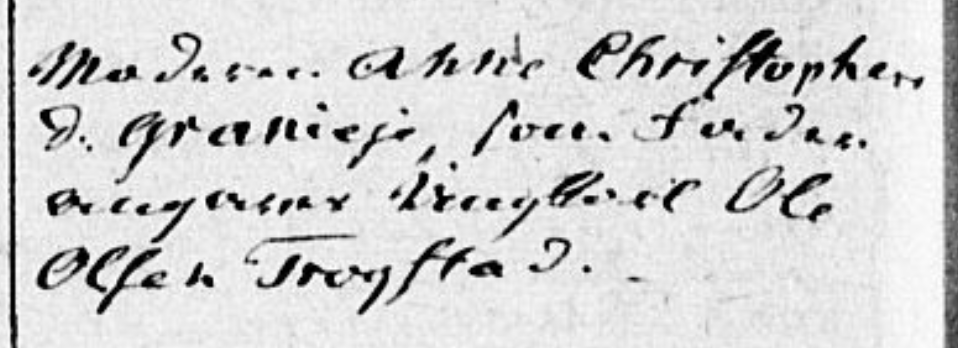 Moderen Anne Christophers
d. Granieje, som Fader
angaves Ungkarl Ole
Olsen Trogstad.